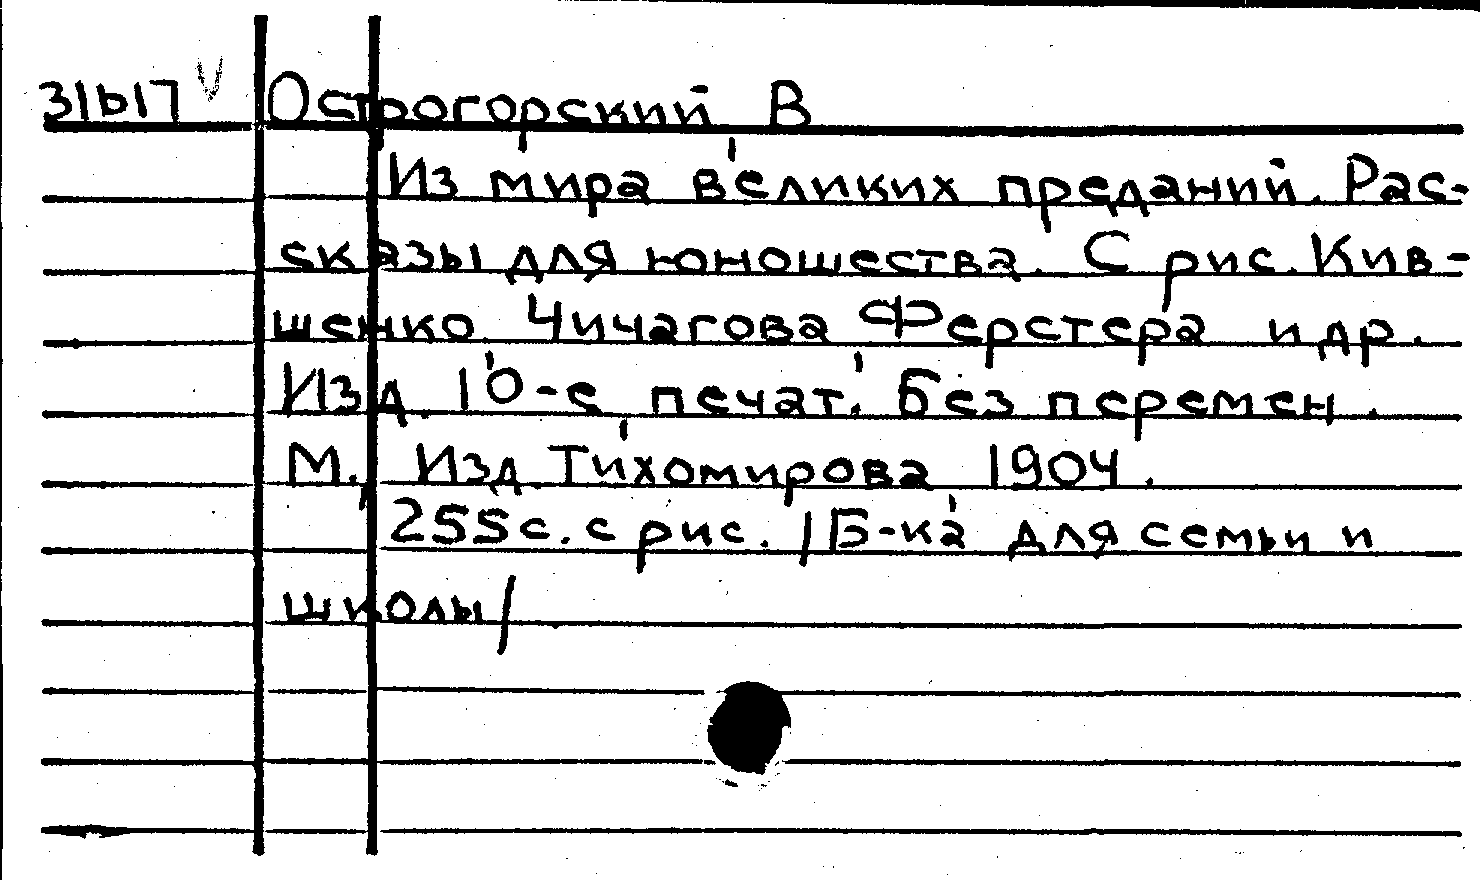 31617 V Острогорский В
Из мира великих преданий. Рас-
сказы для юношества. С рис. Кив-
шенко. Чичагова Ферстера и др.
Изд. 10-е, печат. без перемен.
М., Изд. Тихомирова 1904.
255с. с рис. /Б-ка для семьи и
школы/